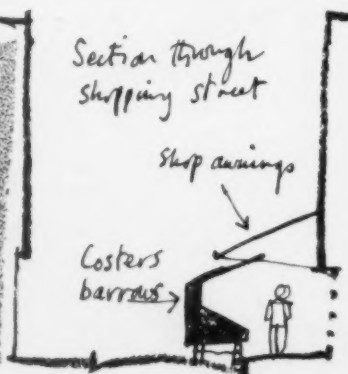 Section through
shopping street
shop awnings
Costers
barrows